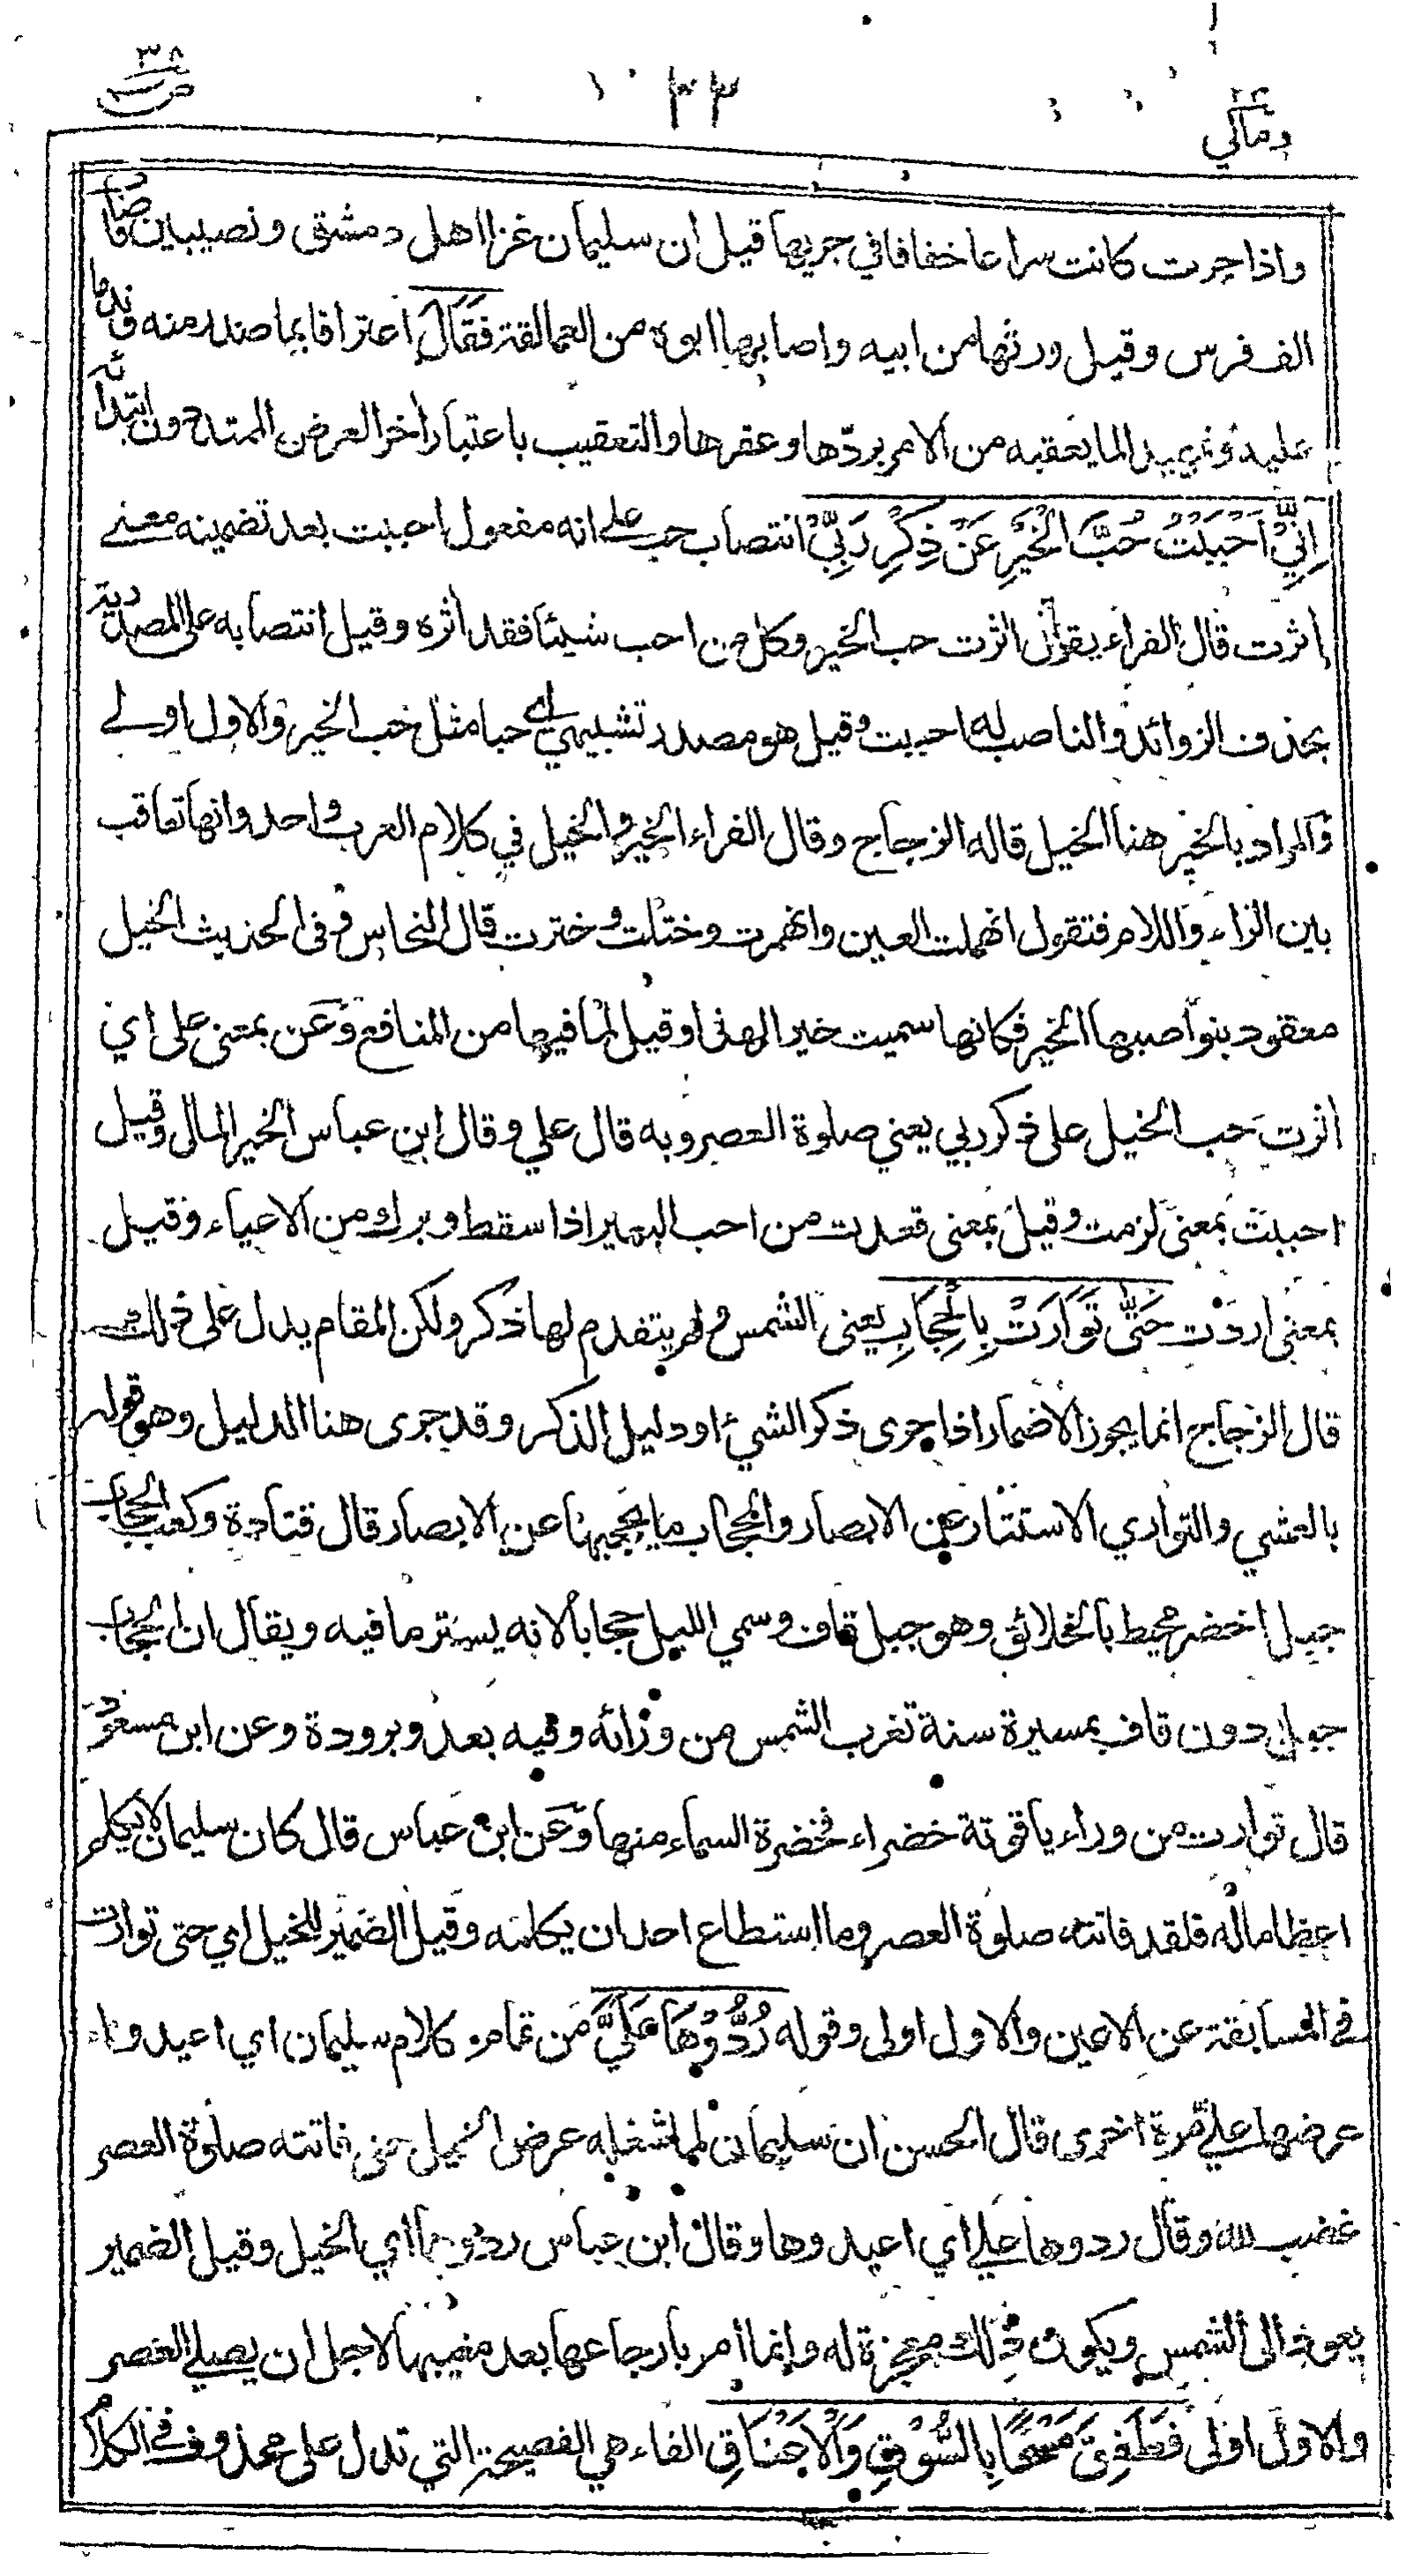 ومالي ٢٣
٣٣
ص ٣٨
واذا جرت كانت سراعا خفافا في جريها قيل ان سليمان غزا اهل دمشق ونصيبين فاصاب
الف فرس وقيل ورثها من ابيه واصابها ابوه من العمالقة فَقَالَ اعترافا بما صدر منه وندما
عليه وتمهيدا لما يعقبه من الامر بردّها وعقرها والتعقيب باعتبار اٰخر العرض الممتد دون ابتدائه
اِنِّيْ اَحْبَبْتُ حُبَّ الْخَيْرِ عَنْ ذِكْرِ رَبِّيْ انتصاب حب على انه مفعول احببت بعد تضمينه معنے
اٰثرت قال الفراء يقول اٰثرت حب الخير وكل من احب شيئا فقد اٰثره وقيل انتصابه على المصدرية
بحذف الزوائد والناصب له احببت وقيل هو مصدر تشبيهي اي حبا مثل حب الخير والاول اولے
والمراد بالخير هنا الخيل قاله الزجاج وقال الفراء الخير والخيل في كلام العرب واحد وانها تعاقب
بين الراء واللام فتقول انهملت العين وانهمرت وختلت وخترت قال النحاس وفى الحديث الخيل
معقود بنواصيها الخير فكانها سميت خيرا لهذا وقيل لما فيها من المنافع وعن بمعنى على اي
اٰثرت حب الخيل على ذكر ربي يعني صلوة العصر وبه قال علي وقال ابن عباس الخير المال وقيل
احببت بمعنى لزمت وقيل بمعنى قعدت من احب البعير اذا سقط وبرك من الاعياء وقيل
بمعنى اردت حَتّٰى تَوَارَتْ بِالْحِجَابِ يعنى الشمس ولم يتقدم لها ذكر ولكن المقام يدل على ذلك
قال الزجاج انما يجوز الاضمار اذا جرى ذكر الشيء او دليل الذكر وقد جرى هنا الدليل وهو قوله
بالعشي والتواري الاستتار عن الابصار والحجاب ما يحجبها عن الابصار قال قتادة وكعب الحجاب
جبل اخضر محيط بالخلائق وهو جبل قاف وسمي الليل حجابا لانه يستر ما فيه ويقال ان الحجاب
جبل دون قاف بمسيرة سنة تغرب الشمس من ورائه وفيه بعد وبرودة وعن ابن مسعود
قال توارت من وراء ياقوتة خضراء فخضرة السماء منها وعن ابن عباس قال كان سليمان لا يكلم
اعظاما له فلقد فاتته صلوة العصر وما استطاع احد ان يكلمه وقيل الضمير للخيل اي حتى توارت
في المسابقة عن الاعين والاول اولى وقوله رُدُّوْهَا عَلَيَّ من تمام كلام سليمان اي اعيدوا
عرضها علي مرة اخرى قال الحسن ان سليمان لما شغله عرض الخيل حتى فاتته صلوة العصر
غضب لله وقال ردوها علي اي اعيدوها وقال ابن عباس ردوها اي الخيل وقيل الضمير
يعود الى الشمس ويكون ذلك معجزة له وانما امر بارجاعها بعد مغيبها لاجل ان يصلي العصر
والاول اولى فَطَفِقَ مَسْحًا بِالسُّوْقِ وَالْاَعْنَاقِ الفاء هي الفصيحة التي تدل على محذوف في الكلام